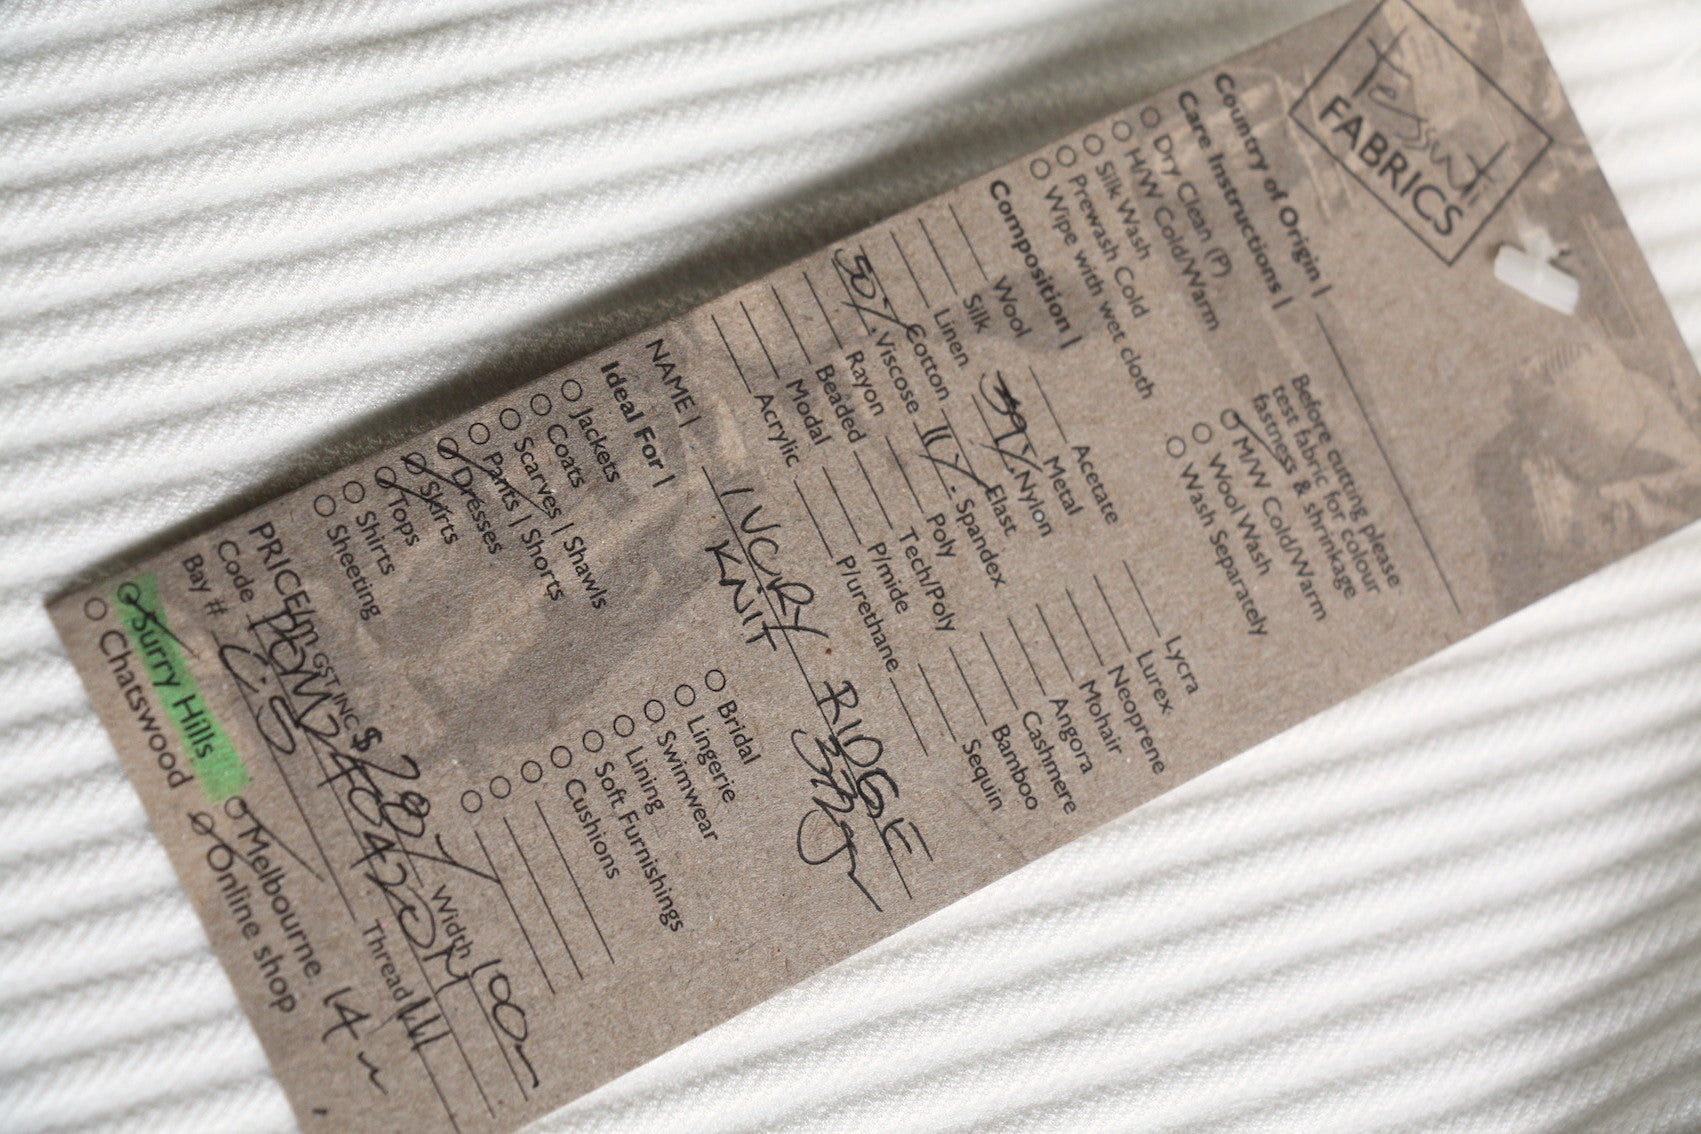 Tessuti
FABRICS
Country of Origin |
Care Instructions |
Dry Clean (P)
H/W Cold/Warm
Silk Wash
Prewash Cold
Wipe with wet cloth
Before cutting please
test fabric for colour
fastness & shrinkage
M/W Cold/Warm
Wool Wash
Wash Separately
Composition |
Wool Acetate Lycra
Silk Metal Lurex
Linen 39% Nylon Neoprene
Cotton Elast Mohair
50% Viscose 11% Spandex Angora
Rayon Poly Cashmere
Beaded Tech/Poly Bamboo
Modal P/mide Sequin
Acrylic P/urethane
NAME | IVORY RIDGE
KNIT
Ideal For |
Jackets Bridal
Coats Lingerie
Scarves | Shawls Swimwear
Pants | Shorts Lining
Dresses Soft Furnishings
Skirts Cushions
Tops
Shirts
Sheeting
PRICE/m GST INC $ 29/ Width 100
Code
Bay # Thread
Surry Hills Melbourne 14
Chatswood Online shop